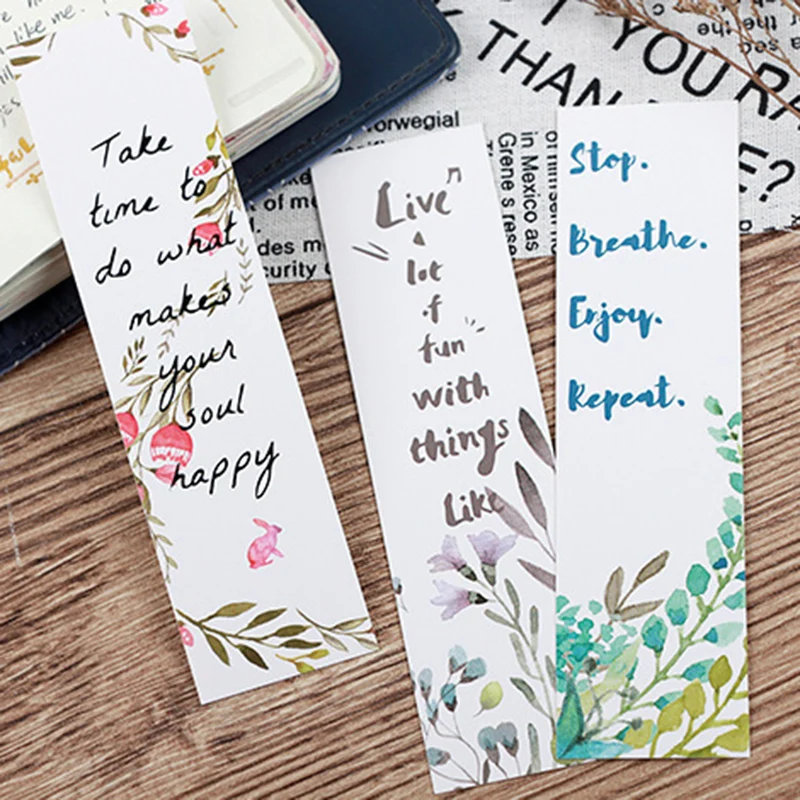 Take
time to
do what
makes
your
soul
happy
Live
a
lot
of
fun
with
things
Like
Stop.
Breathe.
Enjoy.
Repeat.
like me.
YOU RA
THAN
E?
orwegial
in Mexico as
Grene s rese
of me
des m
curity